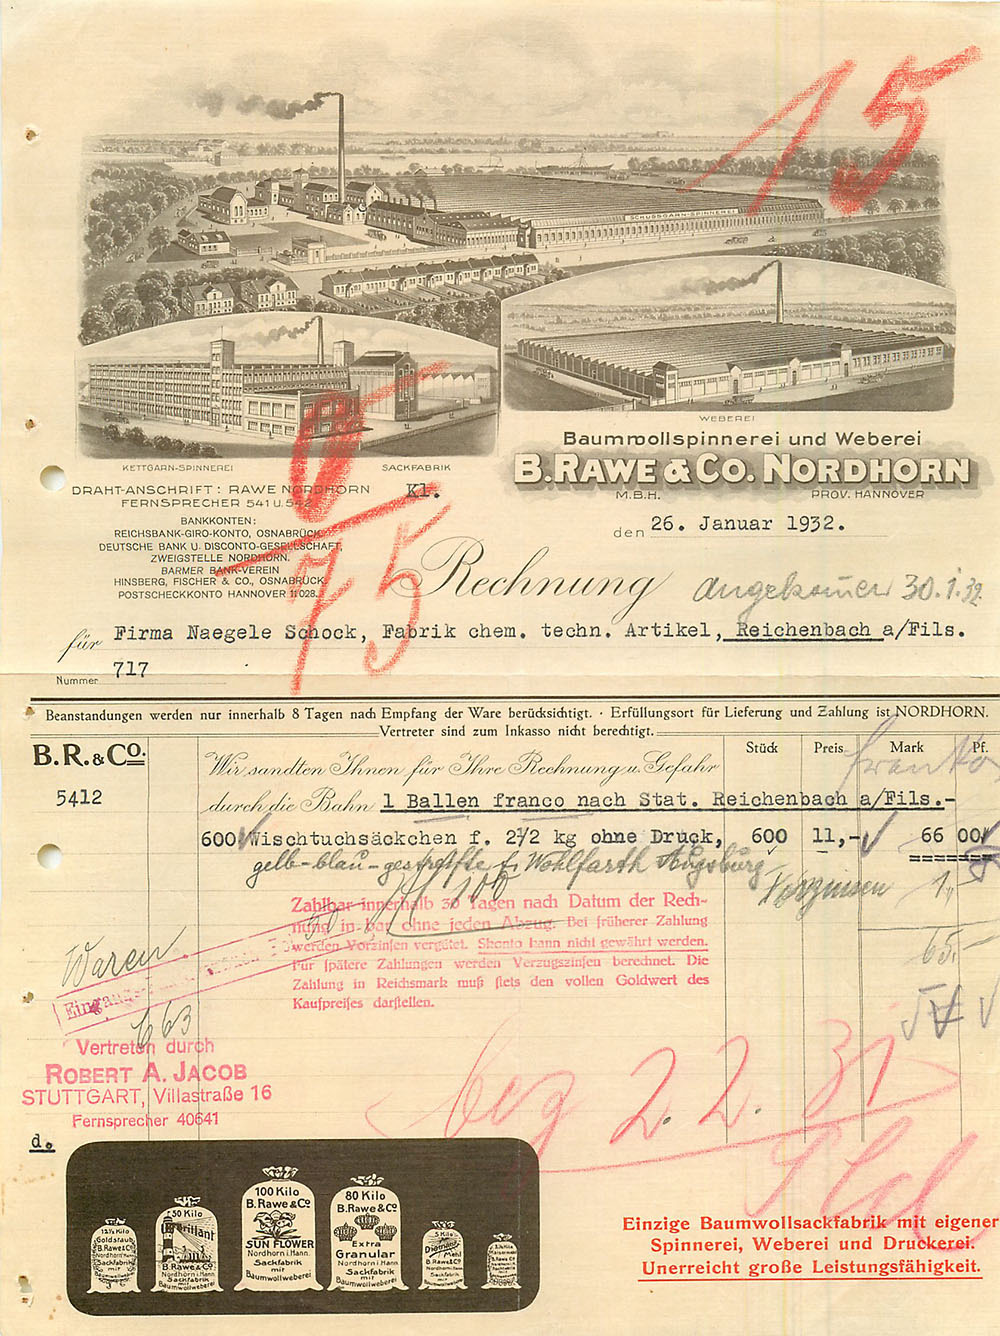 15
SCHUSSGARN-SPINNEREI
WEBEREI
KETTGARN-SPINNEREI
SACKFABRIK
Baumwollspinnerei und Weberei
B. RAWE & CO. NORDHORN
M.B.H.
PROV. HANNOVER
DRAHT-ANSCHRIFT: RAWE NORDHORN
Kl.
FERNSPRECHER 541 U. 542
BANKKONTEN:
REICHSBANK-GIRO-KONTO, OSNABRÜCK
DEUTSCHE BANK U. DISCONTO-GESELLSCHAFT,
ZWEIGSTELLE NORDHORN.
BARMER BANK-VEREIN
HINSBERG, FISCHER & CO., OSNABRÜCK.
POSTSCHECKKONTO HANNOVER 11028.
75
den 26. Januar 1932.
Rechnung
angekommen 30.1.32
für Firma Naegele Schock, Fabrik chem. techn. Artikel, Reichenbach a/Fils.
Nummer 717
Beanstandungen werden nur innerhalb 8 Tagen nach Empfang der Ware berücksichtigt. · Erfüllungsort für Lieferung und Zahlung ist NORDHORN.
Vertreter sind zum Inkasso nicht berechtigt.
B.R.&Co.
Wir sandten Ihnen für Ihre Rechnung u. Gefahr
Stück Preis Mark Pf.
franko
5412
durch die Bahn 1 Ballen franco nach Stat. Reichenbach a/Fils.-
600 Wischtuchsäckchen f. 2 1/2 kg ohne Druck, 600 11,- 66 00
gelb-blau-gestreifte f. Wohlfarth Augsburg
100
1,-
65.-
Zahlbar innerhalb 30 Tagen nach Datum der Rech-
nung in bar ohne jeden Abzug. Bei früherer Zahlung
werden Vorzinsen vergütet. Skonto kann nicht gewährt werden.
Für spätere Zahlungen werden Verzugszinsen berechnet. Die
Zahlung in Reichsmark muß stets den vollen Goldwert des
Kaufpreises darstellen.
Waren
663
Vertreten durch
ROBERT A. JACOB
STUTTGART, Villastraße 16
Fernsprecher 40641
bez 2. 2. 32
d.
12½ Kilo
Goldstaub
B. Rawe & Co
Nordhorn i. Hann.
Sackfabrik
mit
Baumwollweberei
50 Kilo
Brillant
B. Rawe & Co
Nordhorn i. Hann.
Sackfabrik
mit
Baumwollweberei
100 Kilo
B. Rawe & Co
SUN FLOWER
Nordhorn i. Hann.
Sackfabrik
mit
Baumwollweberei
80 Kilo
B. Rawe & Co
Extra
Granular
Nordhorn i. Hann.
Sackfabrik
mit
Baumwollweberei
5 Kilo
Mehl
B. Rawe & Co
Nordhorn i. Hann.
Sackfabrik
mit
Baumwollweberei
Einzige Baumwollsackfabrik mit eigener
Spinnerei, Weberei und Druckerei.
Unerreicht große Leistungsfähigkeit.